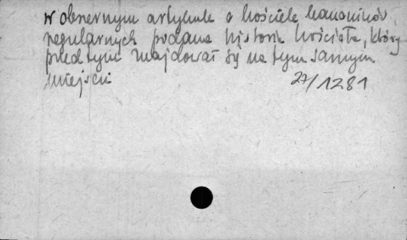 W obszernym artykule o kościele kanoników
regularnych podana historia kościoła, który
przedtym znajdował się na tym samym
miejscu
27/1281